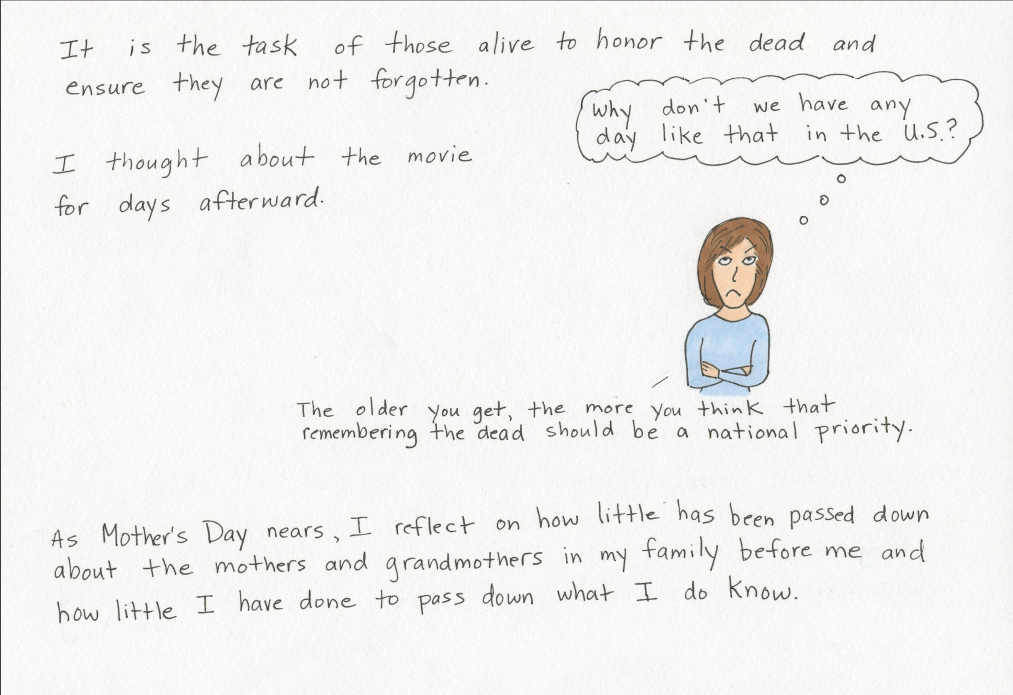 It is the task of those alive to honor the dead and
ensure they are not forgotten.
Why don't we have any
day like that in the U.S.?
I thought about the movie
for days afterward.
The older you get, the more you think that
remembering the dead should be a national priority.
As Mother's Day nears, I reflect on how little has been passed down
about the mothers and grandmothers in my family before me and
how little I have done to pass down what I do know.